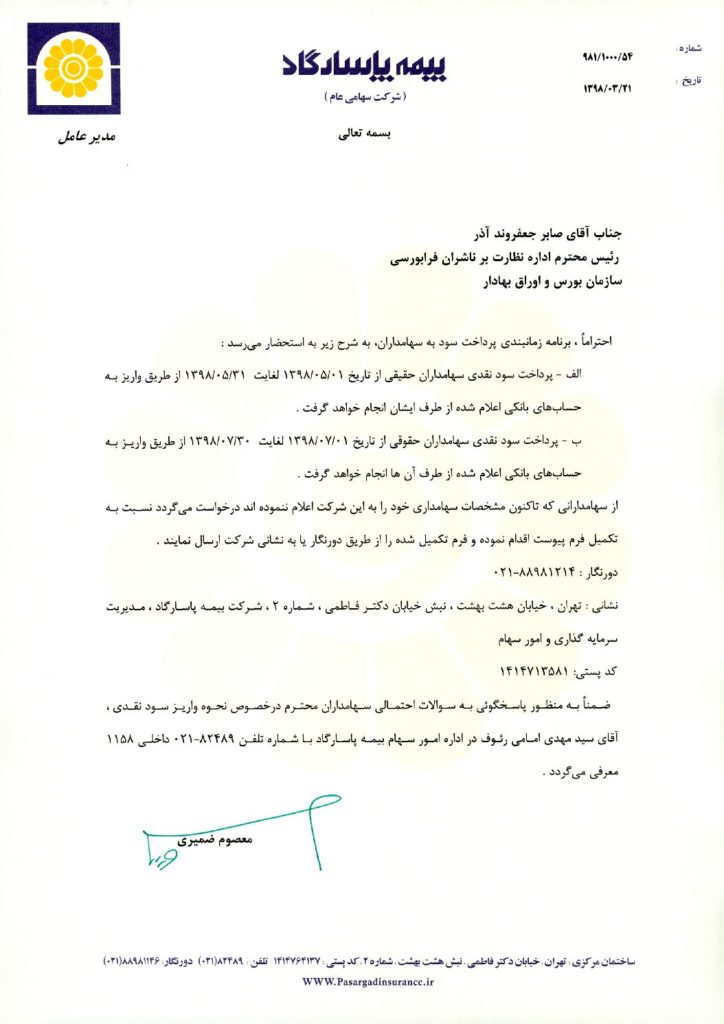 شماره:
۹۸۱/۱۰۰۰/۵۴
تاریخ :
۱۳۹۸/۰۳/۲۱
بیمه پاسارگاد
( شرکت سهامی عام )
بسمه تعالی
مدیر عامل
جناب آقای صابر جعفروند آذر
رئیس محترم اداره نظارت بر ناشران فرابورسی
سازمان بورس و اوراق بهادار
احتراماً ، برنامه زمانبندی پرداخت سود به سهامداران، به شرح زیر به استحضار می‌رسد :
الف - پرداخت سود نقدی سهامداران حقیقی از تاریخ ۱۳۹۸/۰۵/۰۱ لغایت ۱۳۹۸/۰۵/۳۱ از طریق واریز به
حساب‌های بانکی اعلام شده از طرف ایشان انجام خواهد گرفت .
ب - پرداخت سود نقدی سهامداران حقوقی از تاریخ ۱۳۹۸/۰۷/۰۱ لغایت ۱۳۹۸/۰۷/۳۰ از طریق واریـز به
حساب‌های بانکی اعلام شده از طرف آن ها انجام خواهد گرفت .
از سهامدارانی که تاکنون مشخصات سهامداری خود را به این شرکت اعلام ننموده اند درخواست می‌گردد نسبت به
تکمیل فرم پیوست اقدام نموده و فرم تکمیل شده را از طریق دورنگار یا به نشانی شرکت ارسال نمایند .
دورنگار : ۸۸۹۸۱۲۱۴-۰۲۱
نشانی : تهران ، خیابان هشت بهشت ، نبش خیابان دکتـر فـاطمی ، شمـاره ۲ ، شـرکت بیمـه پاسـارگاد ، مـدیریت
سرمایه گذاری و امور سهام
کد پستی: ۱۴۱۴۷۱۳۵۸۱
ضمناً به منظور پاسخگوئی به سوالات احتمـالی سـهامداران محتـرم درخصـوص نحـوه واریـز سـود نقـدی ،
آقای سید مهدی امامی رئـوف در اداره امور سـهام بیمـه پاسارگاد بـا شـماره تلفـن ۸۲۴۸۹-۰۲۱ داخلـی ۱۱۵۸
معرفی می‌گردد .
معصوم ضمیری
ساختمان مرکزی : تهران . خیابان دکتر فاطمی . نبش هشت بهشت . شماره ۲ . کد پستی : ۱۴۱۴۷۶۴۱۳۷ تلفن : ۸۲۴۸۹(۰۲۱) دورنگار: ۸۸۹۸۱۱۴۶(۰۲۱)
WWW.Pasargadinsurance.ir